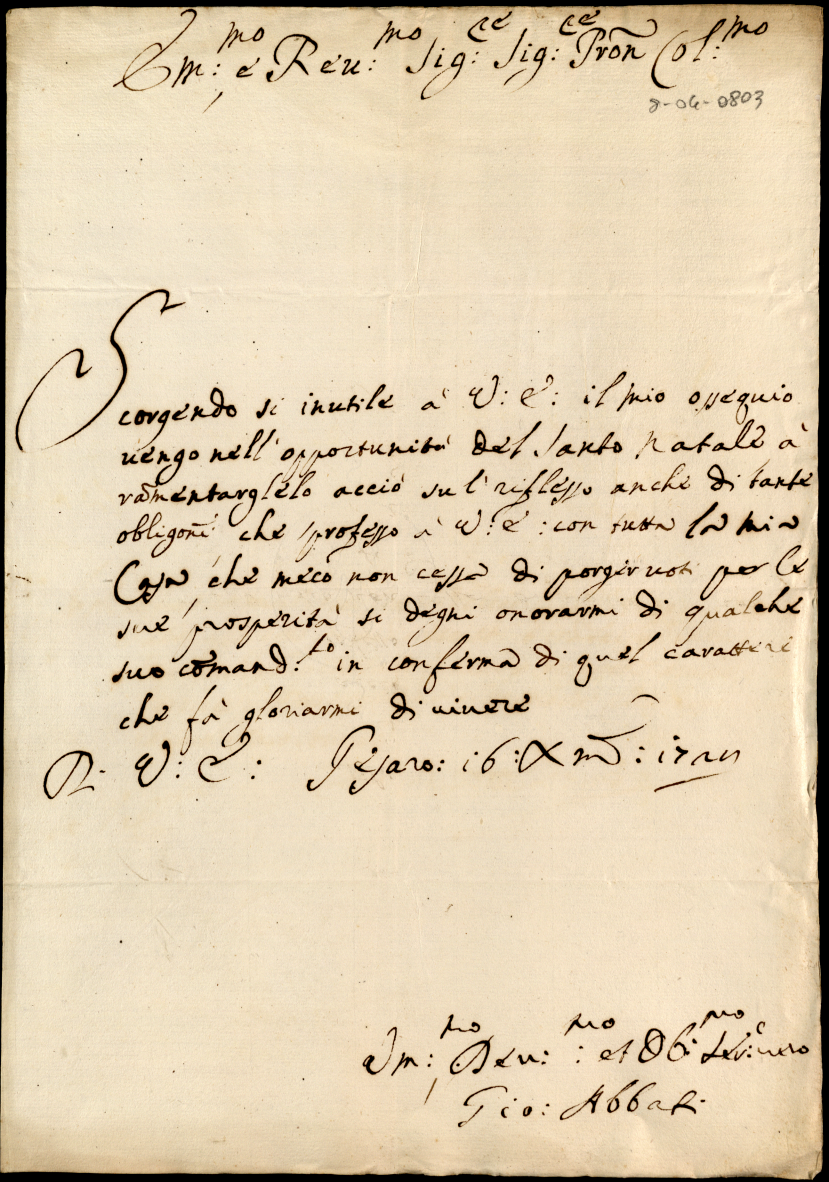 Em:mo e Reu:mo Sig:re Sig:re Pron Col:mo
8-04-0803
Scorgendo si inutile à V: E: il mio ossequio
uengo nell'opportunità del Santo Natale à
ramentarglelo acciò sul riflesso anche di tante
obligoni che professo à V: E: con tutta la mia
Casa che meco non cessa di porger uoti per le
sue prosperità si degni onorarmi di qualche
suo comand:to in conferma di quel carattere
che fà gloriarmi di uiuere
Di V: E: Pesaro: i6: Xmb:
Vm:mo Deu:mo et Ob:mo Ser:e uero
Gio: Abbati